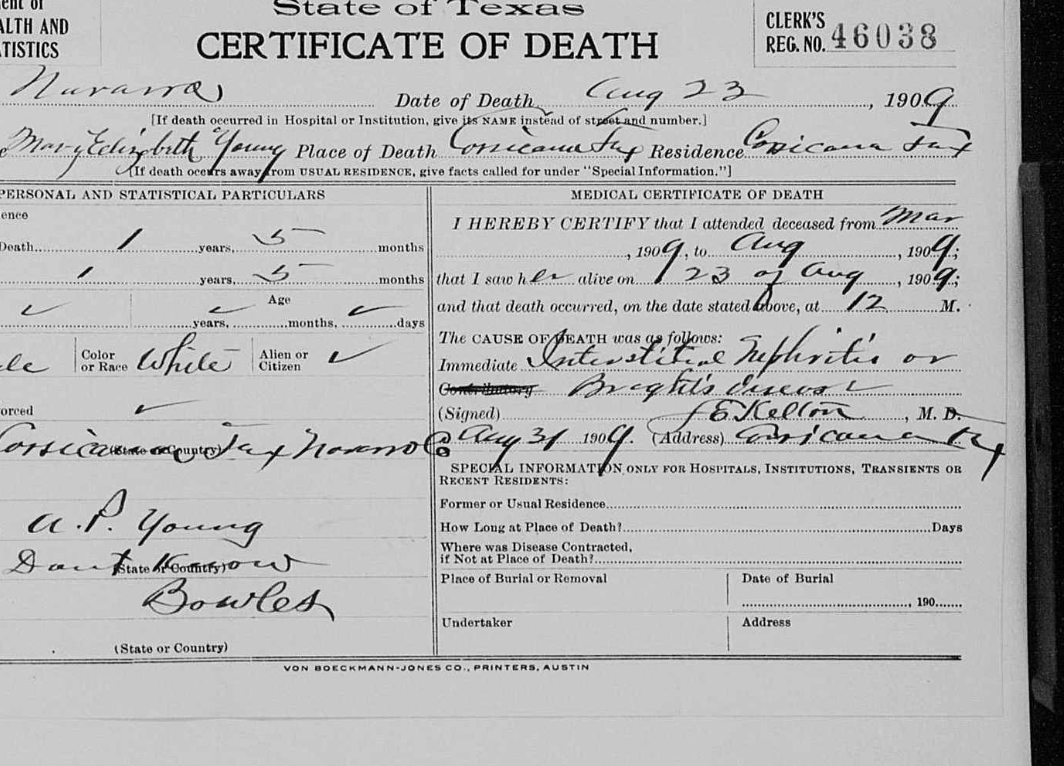 ent of State of Texas
ALTH AND CERTIFICATE OF DEATH CLERK'S
TISTICS REG. NO. 46038
Navarro Date of Death Aug 23, 1909
[If death occurred in Hospital or Institution, give its NAME instead of street and number.]
Mary Elizabeth Young Place of Death Corsicana Tex Residence Corsicana Tex
(If death occurs away from USUAL RESIDENCE, give facts called for under "Special Information."]
PERSONAL AND STATISTICAL PARTICULARS
ence
Death 1 years, 5 months
1 years, 5 months
Age
years, months, days
le Color or Race White Alien or Citizen
orced
Corsicana (State or Country) Tex Navarro Co
A. P. Young
Dont Know (State or Country)
Bowles
(State or Country)
MEDICAL CERTIFICATE OF DEATH
I HEREBY CERTIFY that I attended deceased from Mar
, 1909, to Aug, 1909;
that I saw her alive on 23 of Aug, 1909;
and that death occurred, on the date stated above, at 12 M.
The CAUSE OF DEATH was as follows:
Immediate Interstitial Nephritis or
Contributory Bright's disease
(Signed) J E Kelton, M. D.
Aug 31 1909. (Address) Corsicana Tx
SPECIAL INFORMATION ONLY FOR HOSPITALS, INSTITUTIONS, TRANSIENTS OR
RECENT RESIDENTS:
Former or Usual Residence
How Long at Place of Death? Days
Where was Disease Contracted,
if Not at Place of Death?
Place of Burial or Removal Date of Burial
, 190
Undertaker Address
VON BOECKMANN-JONES CO., PRINTERS, AUSTIN